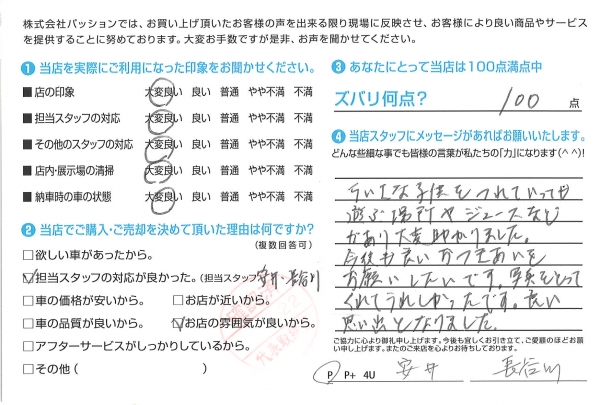 株式会社パッションでは、お買い上げ頂いたお客様の声を出来る限り現場に反映させ、お客様により良い商品やサービス
を提供することに努めております。大変お手数ですが是非、お声を聞かせてください。
1 当店を実際にご利用になった印象をお聞かせください。
■店の印象 大変良い 良い 普通 やや不満 不満
■担当スタッフの対応 大変良い 良い 普通 やや不満 不満
■その他のスタッフの対応 大変良い 良い 普通 やや不満 不満
■店内・展示場の清掃 大変良い 良い 普通 やや不満 不満
■納車時の車の状態 大変良い 良い 普通 やや不満 不満
2 当店でご購入・ご売却を決めて頂いた理由は何ですか?
(複数回答可)
□欲しい車があったから。
☑担当スタッフの対応が良かった。(担当スタッフ 安井・長谷川
□車の価格が安いから。 □お店が近いから。
□車の品質が良いから。 ☑お店の雰囲気が良いから。
□アフターサービスがしっかりしているから。
□その他( )
3 あなたにとって当店は100点満点中
ズバリ何点? 100 点
4 当店スタッフにメッセージがあればお願いいたします。
どんな些細な事でも皆様の言葉が私たちの「力」になります(^^)!
小さな子供をつれていっても
遊ぶ場所やジュースなど
があり大変助かりました。
今後も良いおつきあいを
お願いしたいです。写真をとって
くれてうれしかったです。良い
思い出となりました。
ご協力に心より御礼申し上げます。今後も宜しくお引き立て、ご愛顧のほどお願
い申し上げます。またのご来店を心よりお待ちしております。
P P+ 4U 安井 長谷川